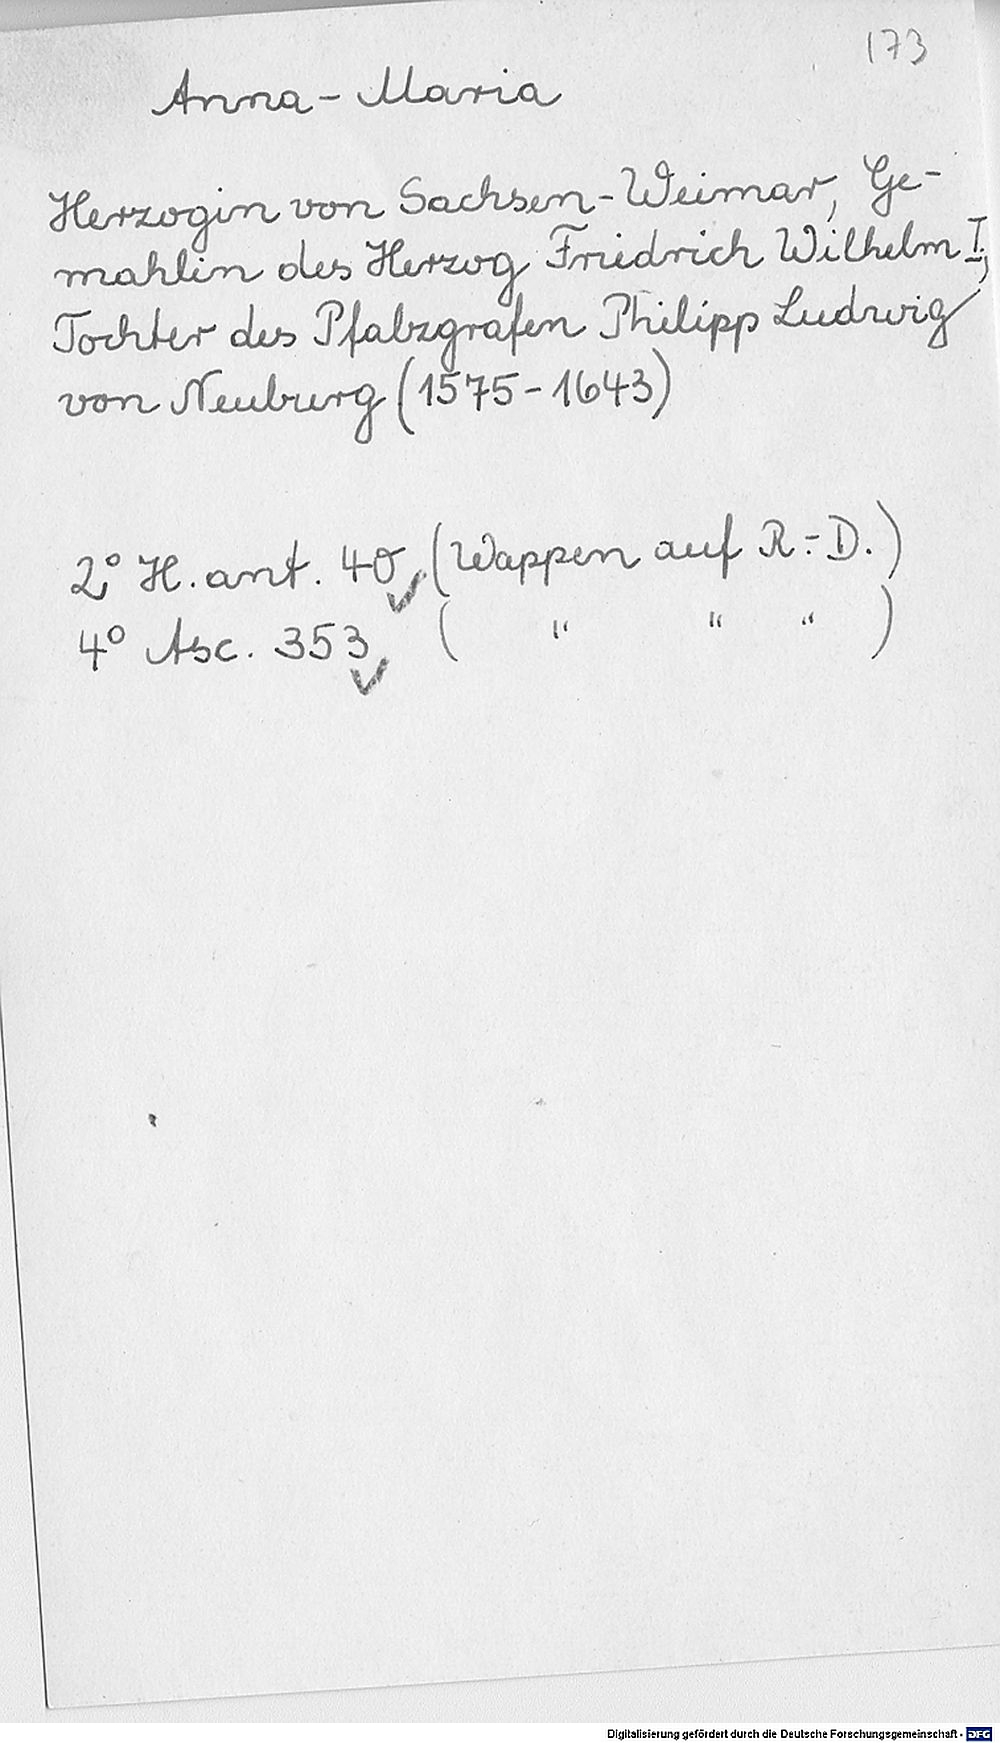 173
Anna-Maria
Herzogin von Sachsen-Weimar, Ge-
mahlin des Herzog Friedrich Wilhelm I.,
Tochter des Pfalzgrafen Philipp Ludwig
von Neuburg (1575-1643)
2° H. ant. 40 (Wappen auf R.-D.)
4° Asc. 353 ( " " " )
Digitalisierung gefördert durch die Deutsche Forschungsgemeinschaft - DFG